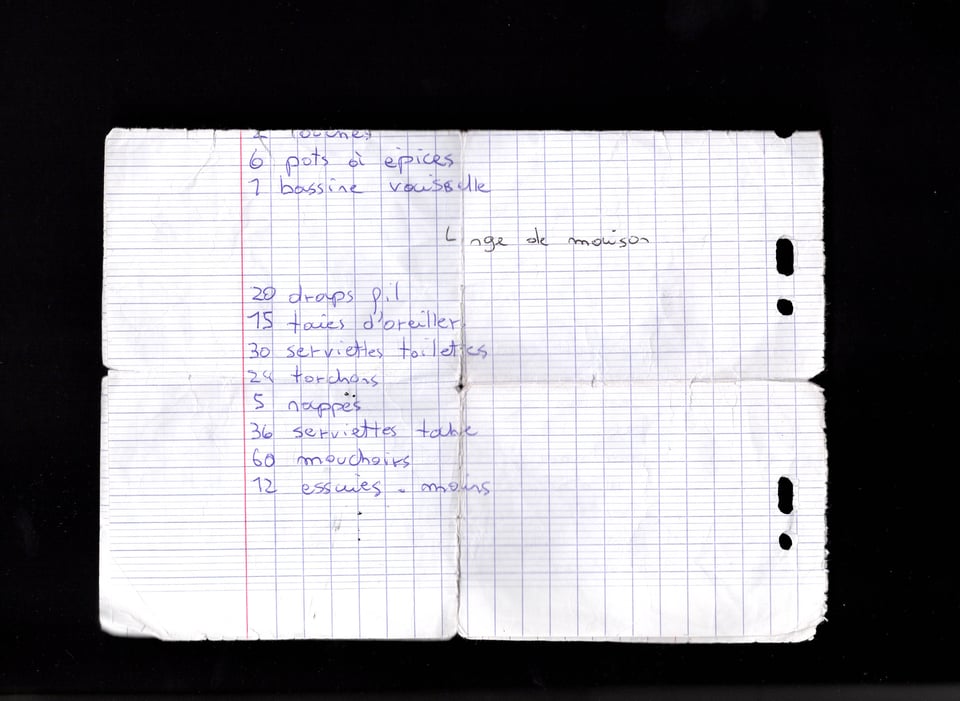 2 louches
6 pots à épices
1 bassine vaisselle
Linge de maison
20 draps fil
15 taies d'oreiller
30 serviettes toilettes
24 torchons
5 nappes
36 serviettes table
60 mouchoirs
12 essuies-mains